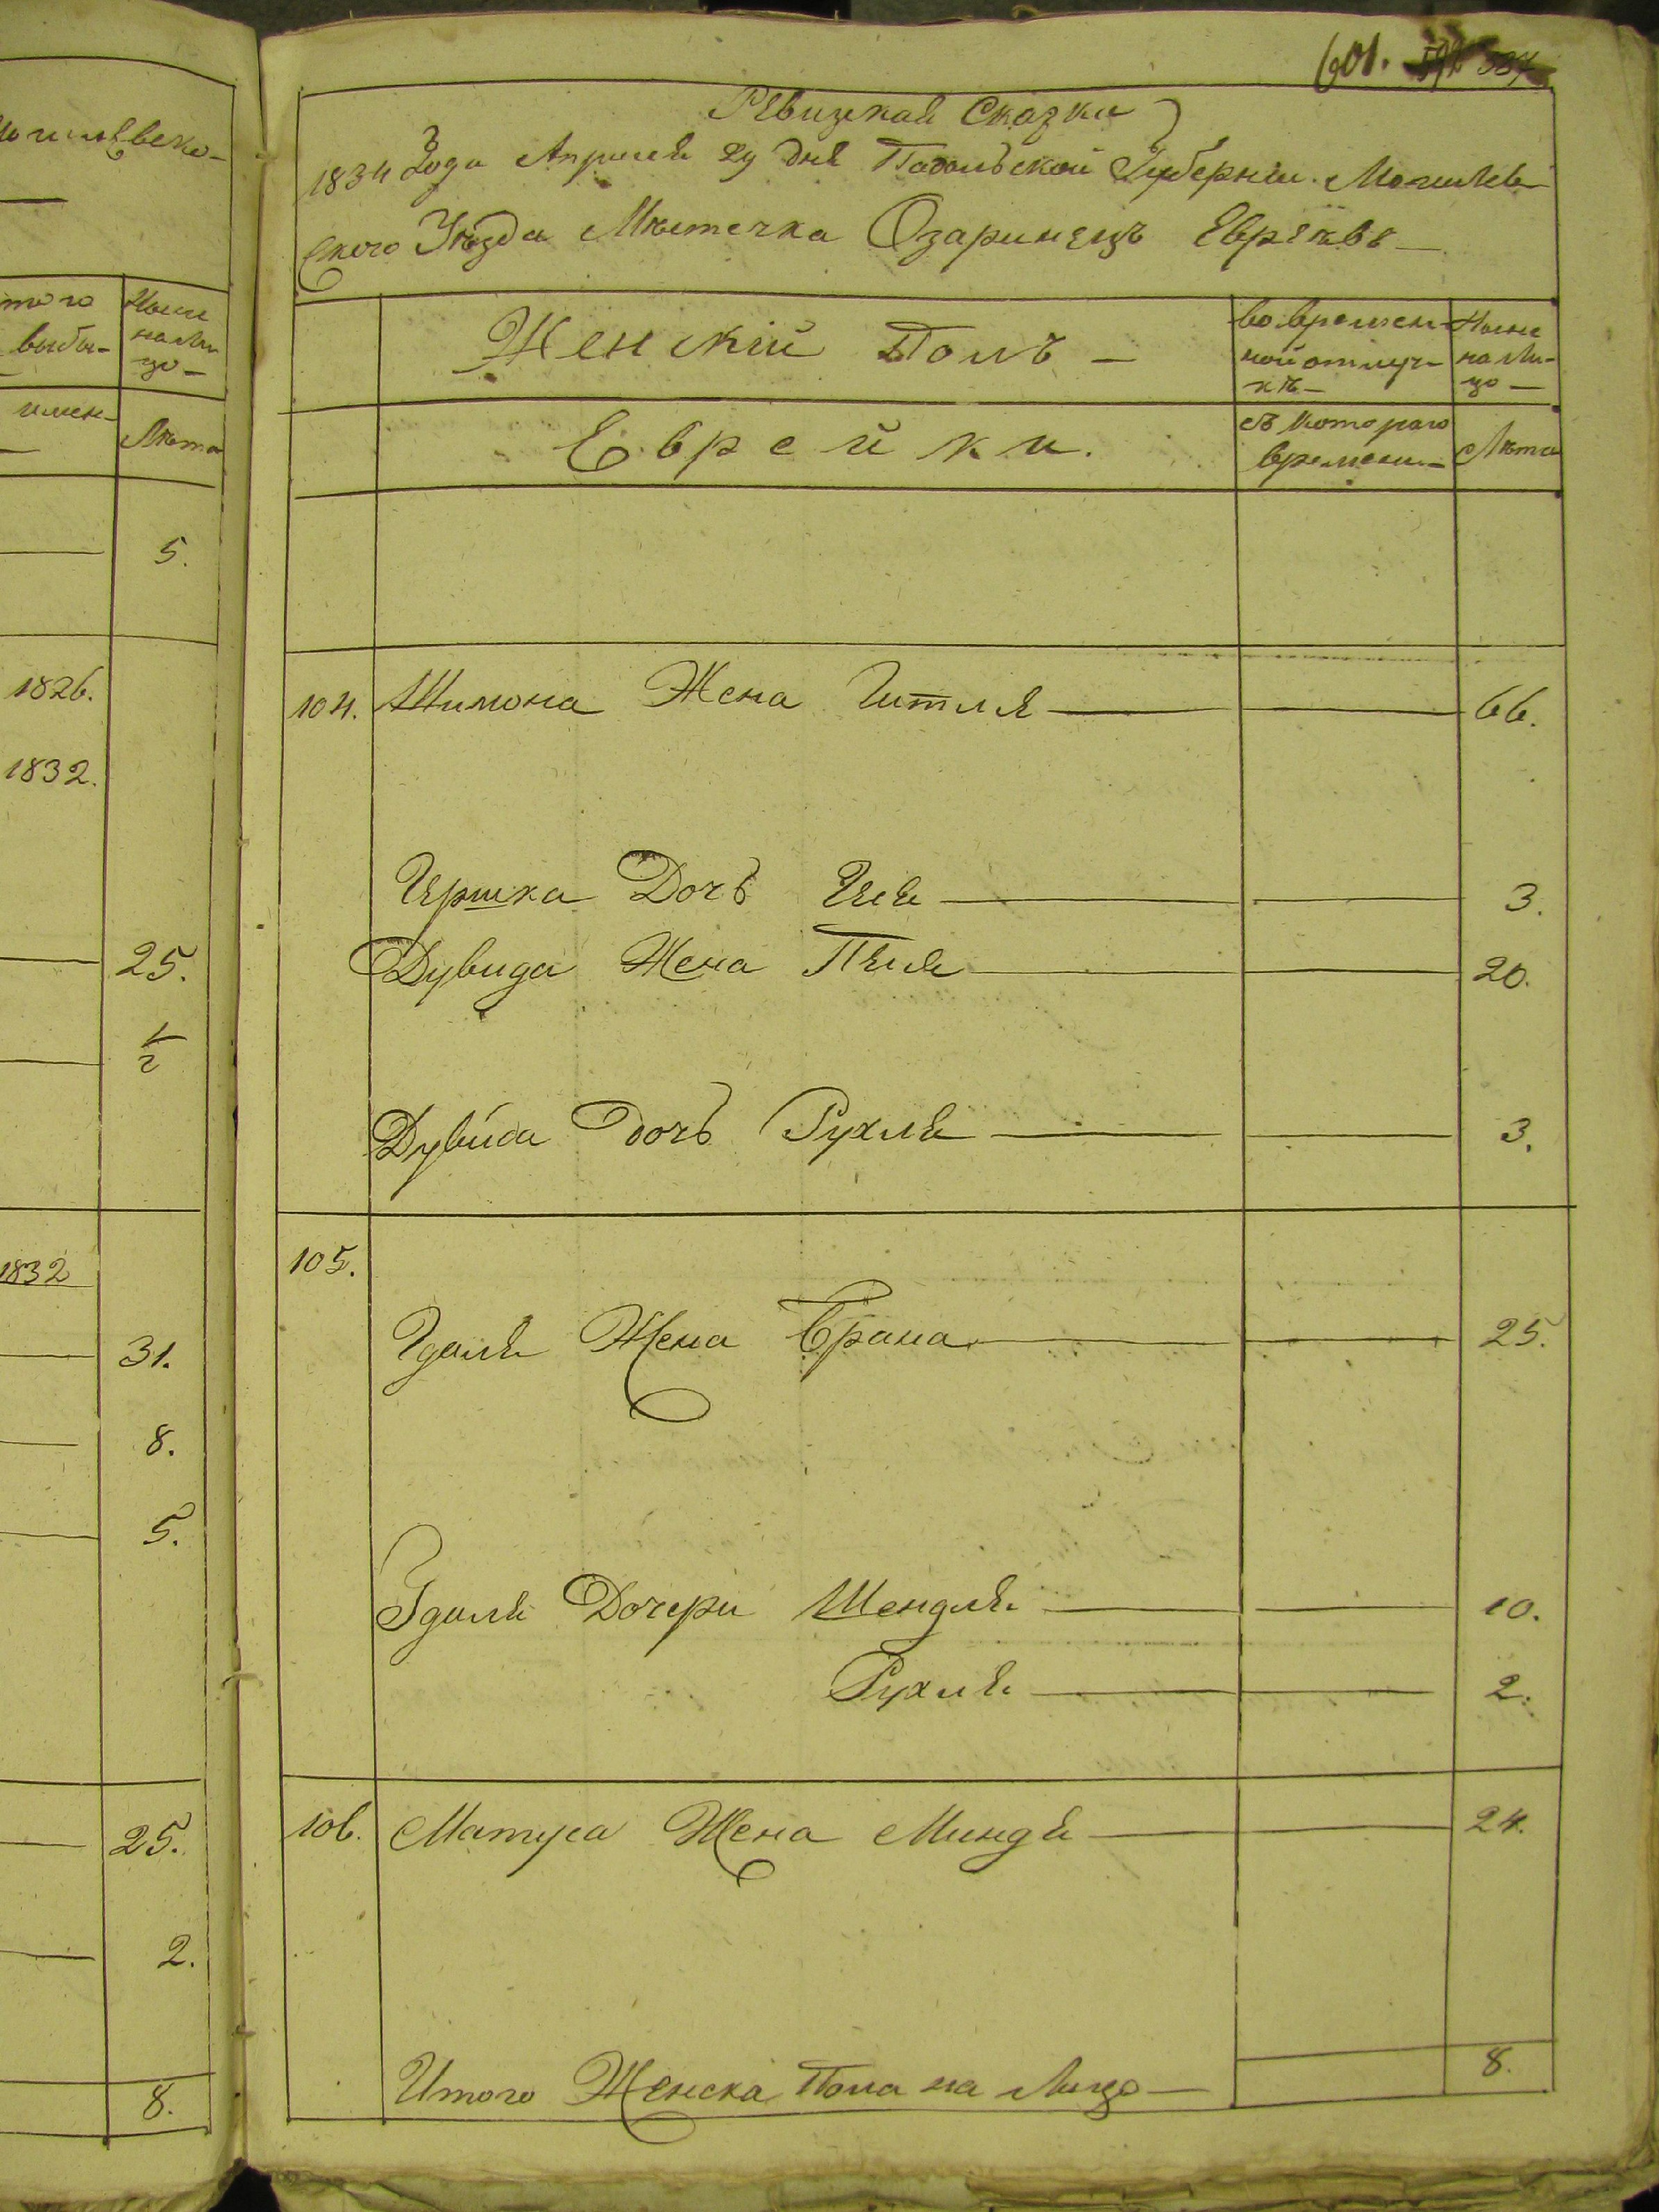 601.
Ревизская Сказка
1834 Года Апреля 29 дня Подольской Губернии Могилев
ского Уѣзда Мѣстечка Озаринецъ Евреевъ
Женскій Полъ
во времен
ной отлуч
кѣ
Ныне
на Ли-
цо
Еврейки.
съ котораго
времени
Лѣта
104. Шимона Жена Гитля 66.
Гершка Дочь 3.
Дувида Жена 20.
Дувида дочь Рухля 3.
105.
Жена Брана 25.
Дочери Шендля 10.
Рухля 2.
106. Матуса Жена Миндя 24.
Итого Женска Пола на Лицо 8.
выбы-
Ныне
на Ли
цо
Лѣта
5.
1826.
1832.
25.
1/2
1832
31.
8.
5.
25.
2.
8.